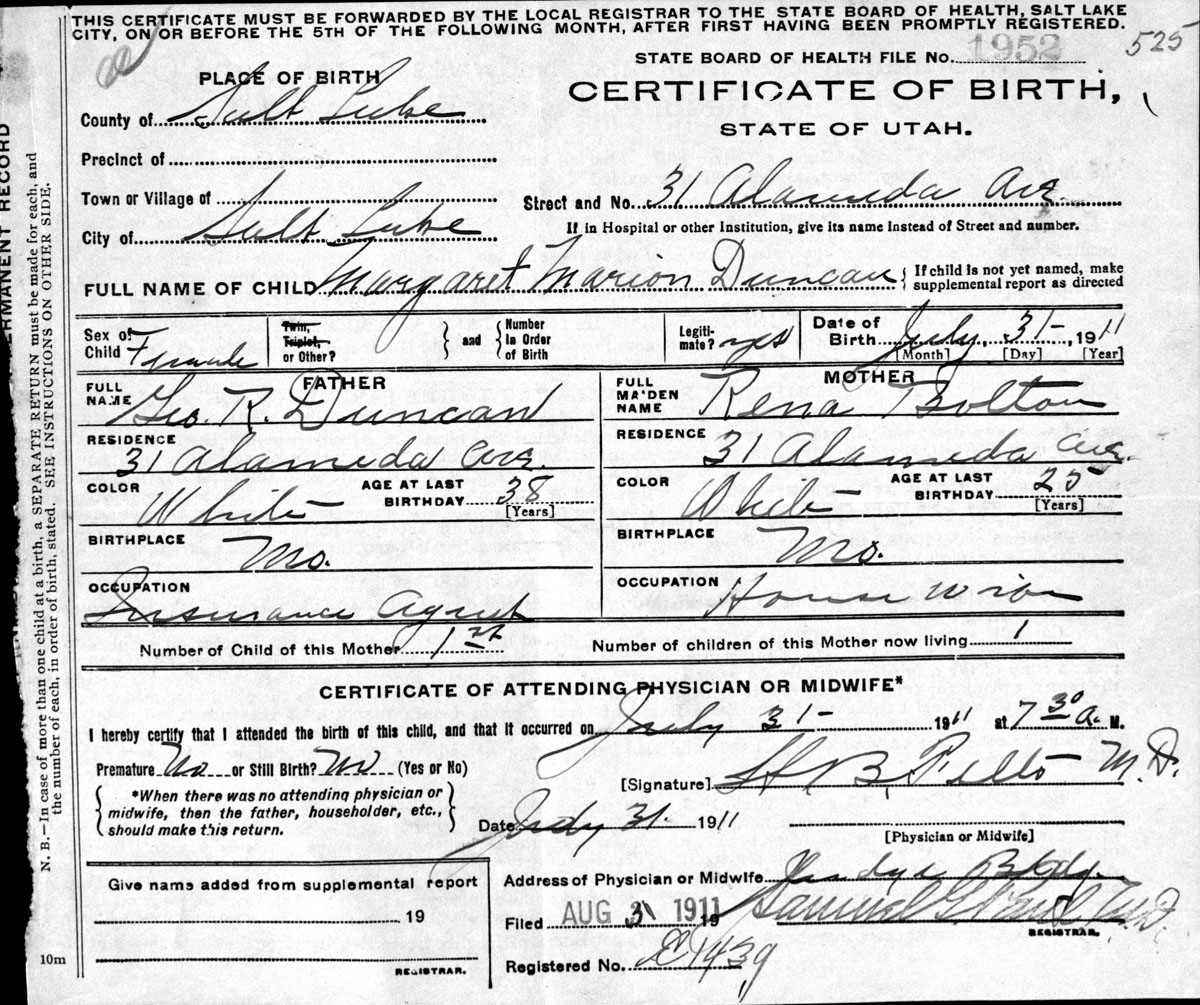 THIS CERTIFICATE MUST BE FORWARDED BY THE LOCAL REGISTRAR TO THE STATE BOARD OF HEALTH, SALT LAKE
CITY, ON OR BEFORE THE 5TH OF THE FOLLOWING MONTH, AFTER FIRST HAVING BEEN PROMPTLY REGISTERED.
525
STATE BOARD OF HEALTH FILE No. 1952
PLACE OF BIRTH
CERTIFICATE OF BIRTH,
STATE OF UTAH.
County of Salt Lake
Precinct of
Town or Village of
Street and No. 31 Alameda Ave.
City of Salt Lake
If in Hospital or other Institution, give its name instead of Street and number.
FULL NAME OF CHILD Margaret Marion Duncan { If child is not yet named, make supplemental report as directed
Sex of Child Female
Twin, Triplet, or Other? } and { Number in Order of Birth
Legitimate? yes
Date of Birth July, 31-, 1911
[Month] [Day] [Year]
FATHER
FULL NAME Geo. R. Duncan
RESIDENCE
31 Alameda Ave.
COLOR White AGE AT LAST BIRTHDAY 38
[Years]
BIRTHPLACE Mo.
OCCUPATION
Insurance Agent
MOTHER
FULL MAIDEN NAME Rena Bolton
RESIDENCE 31 Alameda Ave.
COLOR White AGE AT LAST BIRTHDAY 25
[Years]
BIRTHPLACE Mo.
OCCUPATION House wife
Number of Child of this Mother 1st
Number of children of this Mother now living 1
CERTIFICATE OF ATTENDING PHYSICIAN OR MIDWIFE*
I hereby certify that I attended the birth of this child, and that it occurred on July 31- 1911 at 7 30 a. M.
Premature No or Still Birth? No (Yes or No)
[Signature] M.D.
*When there was no attending physician or
midwife, then the father, householder, etc.,
should make this return.
Date July 31. 1911
[Physician or Midwife]
Give name added from supplemental report
19
REGISTRAR.
Address of Physician or Midwife
Filed AUG 31 1911 19
Samuel G. Paul M.D.
REGISTRAR.
Registered No. 1439
10m
PERMANENT RECORD
N. B.—In case of more than one child at a birth, a SEPARATE RETURN must be made for each, and
the number of each, in order of birth, stated. SEE INSTRUCTIONS ON OTHER SIDE.